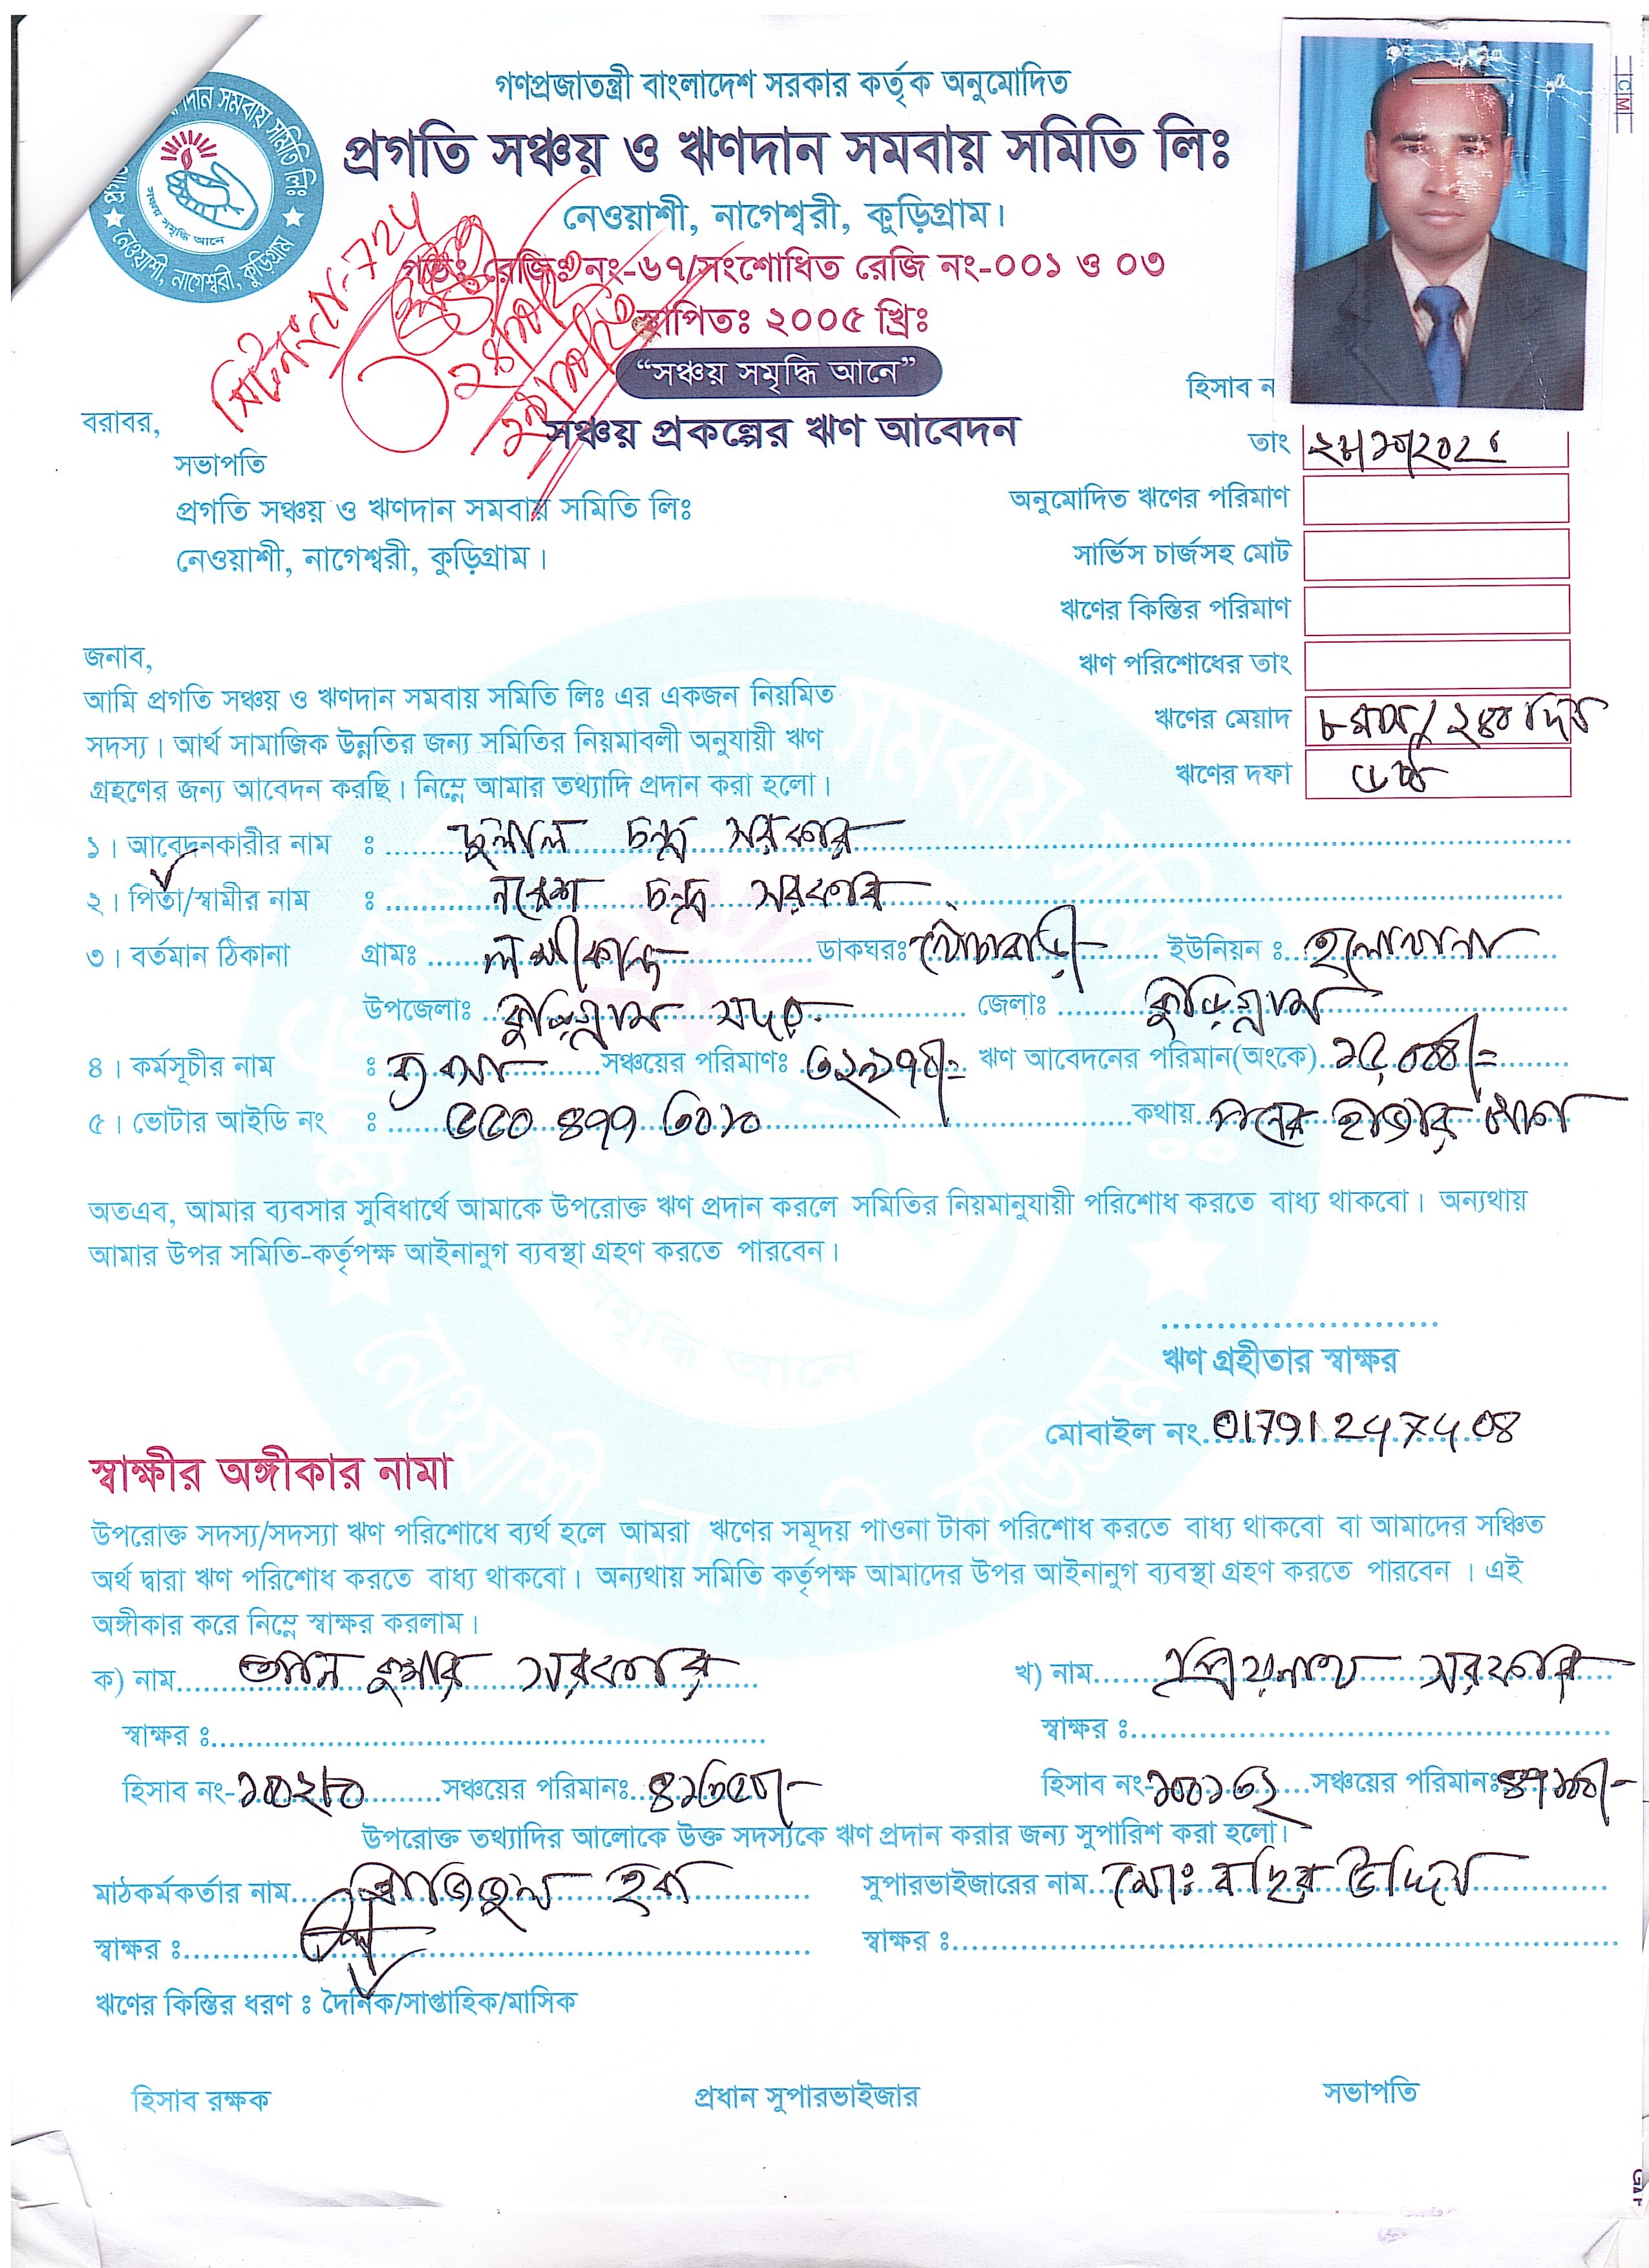 গণপ্রজাতন্ত্রী বাংলাদেশ সরকার কর্তৃক অনুমোদিত
প্রগতি সঞ্চয় ও ঋণদান সমবায় সমিতি লিঃ
নেওয়াশী, নাগেশ্বরী, কুড়িগ্রাম।
গভঃ রেজিঃ নং-৬৭/সংশোধিত রেজি নং-০০১ ও ০৩
স্থাপিতঃ ২০০৫ খ্রিঃ
“সঞ্চয় সমৃদ্ধি আনে”
সঞ্চয় প্রকল্পের ঋণ আবেদন
হিসাব ন
তাং
বরাবর,
সভাপতি
প্রগতি সঞ্চয় ও ঋণদান সমবায় সমিতি লিঃ
নেওয়াশী, নাগেশ্বরী, কুড়িগ্রাম।
অনুমোদিত ঋণের পরিমাণ
সার্ভিস চার্জসহ মোট
ঋণের কিস্তির পরিমাণ
ঋণ পরিশোধের তাং
ঋণের মেয়াদ ৮ মাস/ ২৪০ দিন
ঋণের দফা
জনাব,
আমি প্রগতি সঞ্চয় ও ঋণদান সমবায় সমিতি লিঃ এর একজন নিয়মিত
সদস্য। আর্থ সামাজিক উন্নতির জন্য সমিতির নিয়মাবলী অনুযায়ী ঋণ
গ্রহণের জন্য আবেদন করছি। নিম্নে আমার তথ্যাদি প্রদান করা হলো।
১। আবেদনকারীর নাম : দুলাল চন্দ্র সরকার
২। পিতা/স্বামীর নাম : নরেশ চন্দ্র সরকার
৩। বর্তমান ঠিকানা গ্রামঃ লক্ষীকান্ত ডাকঘরঃ ইউনিয়ন : হলোখানা
উপজেলাঃ কুড়িগ্রাম সদর জেলাঃ কুড়িগ্রাম
৪। কর্মসূচীর নাম : ব্যবসা সঞ্চয়ের পরিমাণঃ ঋণ আবেদনের পরিমান(অংকে) ১৫,০০০/=
৫। ভোটার আইডি নং : ৫৫০ ৪৭৭ ৬০১০ কথায় পনের হাজার টাকা
অতএব, আমার ব্যবসার সুবিধার্থে আমাকে উপরোক্ত ঋণ প্রদান করলে সমিতির নিয়মানুযায়ী পরিশোধ করতে বাধ্য থাকবো। অন্যথায়
আমার উপর সমিতি-কর্তৃপক্ষ আইনানুগ ব্যবস্থা গ্রহণ করতে পারবেন।
ঋণ গ্রহীতার স্বাক্ষর
মোবাইল নং 01791247408
স্বাক্ষীর অঙ্গীকার নামা
উপরোক্ত সদস্য/সদস্যা ঋণ পরিশোধে ব্যর্থ হলে আমরা ঋণের সমূদয় পাওনা টাকা পরিশোধ করতে বাধ্য থাকবো বা আমাদের সঞ্চিত
অর্থ দ্বারা ঋণ পরিশোধ করতে বাধ্য থাকবো। অন্যথায় সমিতি কর্তৃপক্ষ আমাদের উপর আইনানুগ ব্যবস্থা গ্রহণ করতে পারবেন । এই
অঙ্গীকার করে নিম্নে স্বাক্ষর করলাম।
ক) নাম কুমার সরকার খ) নাম প্রিয়নাথ সরকার
স্বাক্ষর : স্বাক্ষর :
হিসাব নং-১০০২৮০ সঞ্চয়ের পরিমানঃ হিসাব নং-১০০১৬২ সঞ্চয়ের পরিমানঃ
উপরোক্ত তথ্যাদির আলোকে উক্ত সদস্যকে ঋণ প্রদান করার জন্য সুপারিশ করা হলো।
মাঠকর্মকর্তার নাম হক সুপারভাইজারের নাম মোঃ বছির উদ্দিন
স্বাক্ষর : স্বাক্ষর :
ঋণের কিস্তির ধরণ : দৈনিক/সাপ্তাহিক/মাসিক
হিসাব রক্ষক প্রধান সুপারভাইজার সভাপতি